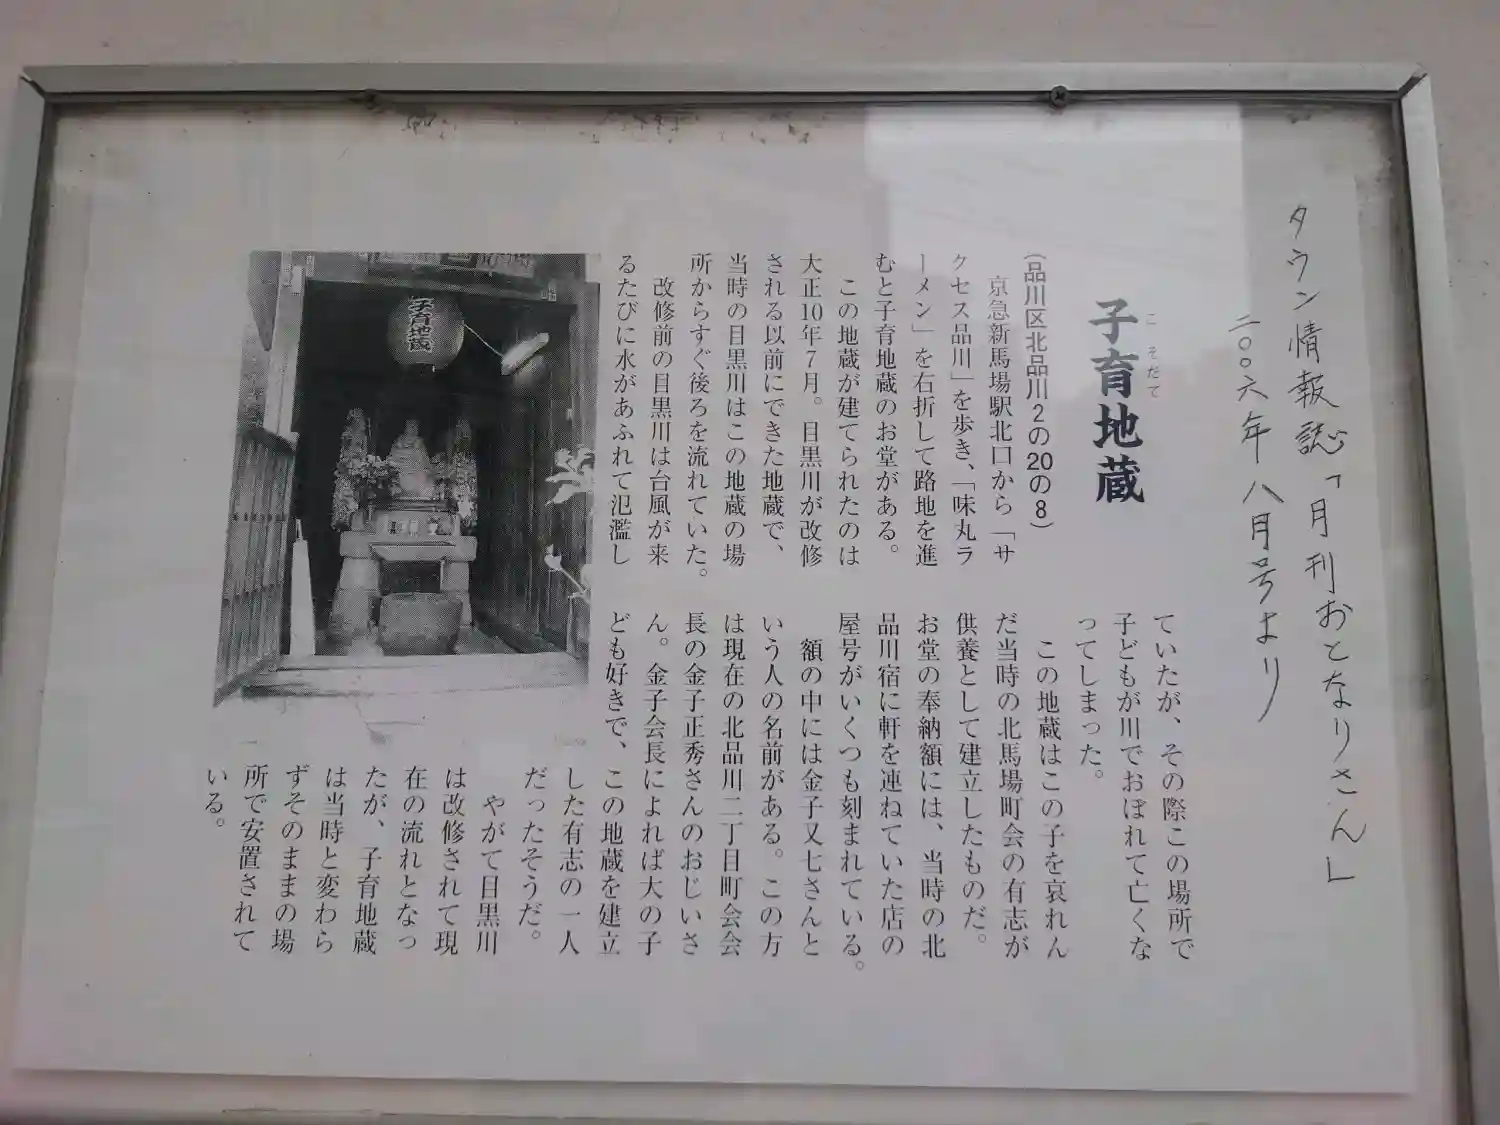 タウン情報誌「月刊おとなりさん」
二〇〇六年八月号より
こそだて
子育地蔵
(品川区北品川2の20の8)
京急新馬場駅北口から「サ
クセス品川」を歩き、「味丸ラ
ーメン」を右折して路地を進
むと子育地蔵のお堂がある。
この地蔵が建てられたのは
大正10年7月。目黒川が改修
される以前にできた地蔵で、
当時の目黒川はこの地蔵の場
所からすぐ後ろを流れていた。
改修前の目黒川は台風が来
るたびに水があふれて氾濫し
ていたが、その際この場所で
子どもが川でおぼれて亡くな
ってしまった。
この地蔵はこの子を哀れん
だ当時の北馬場町会の有志が
供養として建立したものだ。
お堂の奉納額には、当時の北
品川宿に軒を連ねていた店の
屋号がいくつも刻まれている。
額の中には金子又七さんと
いう人の名前がある。この方
は現在の北品川二丁目町会会
長の金子正秀さんのおじいさ
ん。金子会長によれば大の子
ども好きで、この地蔵を建立
した有志の一人
だったそうだ。
やがて目黒川
は改修されて現
在の流れとなっ
たが、子育地蔵
は当時と変わら
ずそのままの場
所で安置されて
いる。
子育地蔵